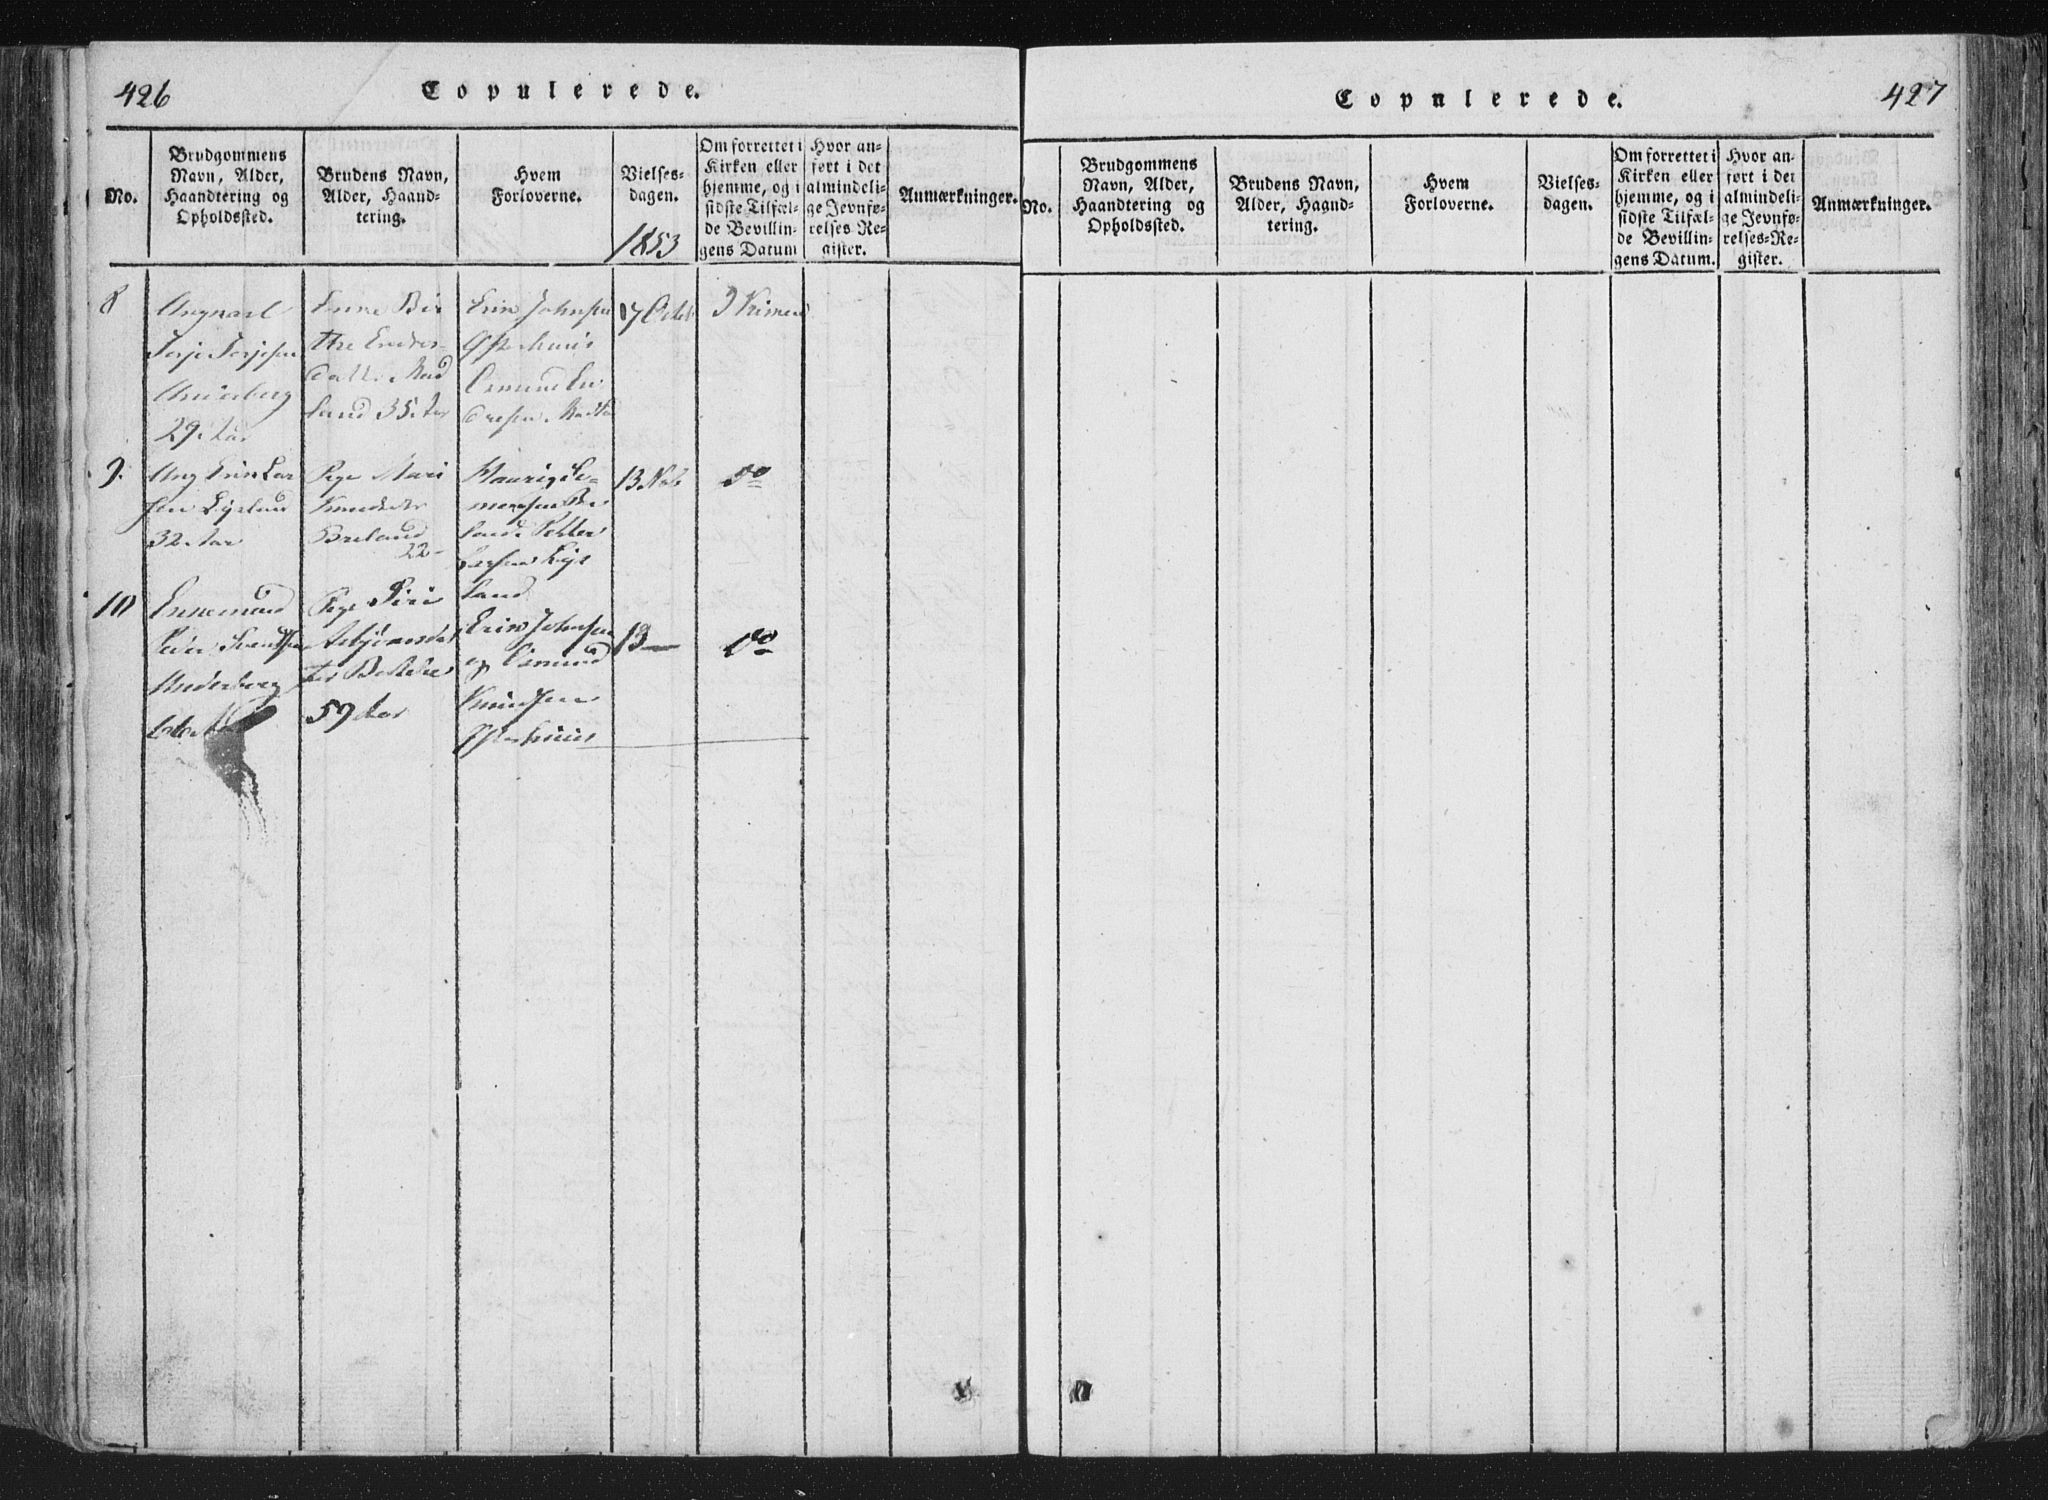 426
Copulerede.
No.
Brudgommens
Navn, Alder,
Haandtering og
Opholdssted.
Brudens Navn,
Alder, Haand-
tering.
Hvem
Forloverne.
Vielses-
dagen.
1853
Om forrettet i
Kirken eller
hjemme, og i
sidste Tilfæl-
de Bevillin-
gens Datum
Hvor an-
ført i det
almindeli-
ge Jevnfø-
relses-Re-
gister.
Anmærkninger.
8
Ungkarl
Terje Terjesen
29 Aar
Anne Bir
the Endres-
land 35 Aar
Erik Johnsen
Osmund En
dresen
17 Octb
I Kirken
9.
Ung Erik Lar
sen
32 Aar
Pige Mari
Knudsdtr
Breland
22-
land Petter
Larsen
land
13 Nov
do
10
Enkemand
Underberg
Pige Siri
Asbjørnsdat
ter
59 Aar
Erik Johnsen
og Osmund
Knudsen
13 —
do
Copulerede.
427
No.
Brudgommens
Navn, Alder,
Haandtering og
Opholdssted.
Brudens Navn,
Alder, Haand-
tering.
Hvem
Forloverne.
Vielses-
dagen.
Om forrettet i
Kirken eller
hjemme, og i
sidste Tilfæl-
de Bevillin-
gens Datum.
Hvor an-
ført i det
almindeli-
ge Jevnfø-
relses-Re-
gister.
Anmærkninger.